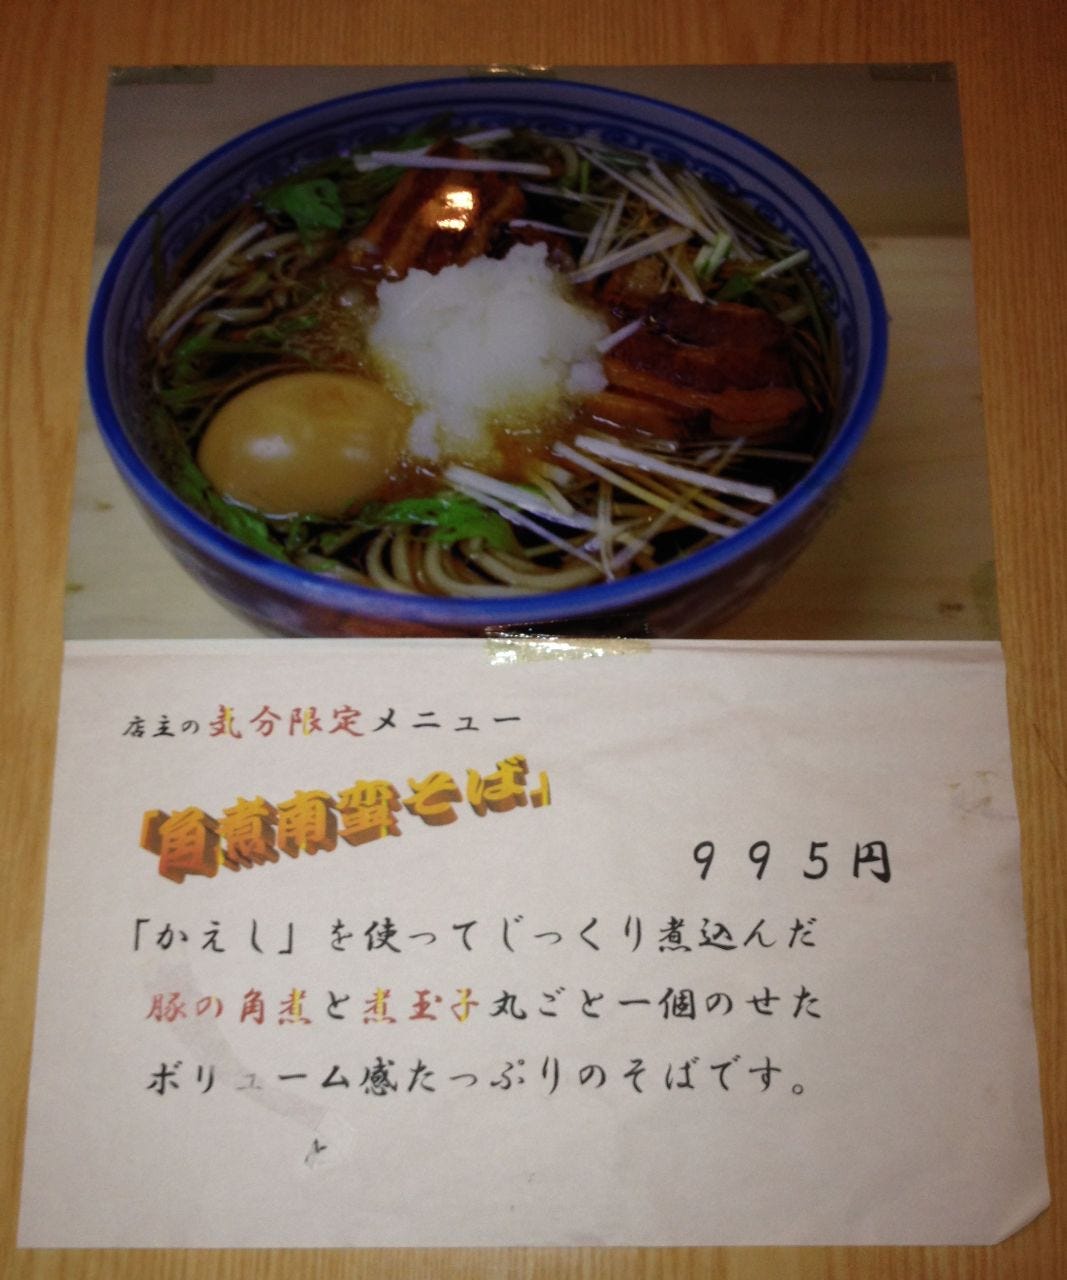 店主の気分限定メニュー
「角煮南蛮そば」
９９５円
「かえし」を使ってじっくり煮込んだ
豚の角煮と煮玉子丸ごと一個のせた
ボリューム感たっぷりのそばです。